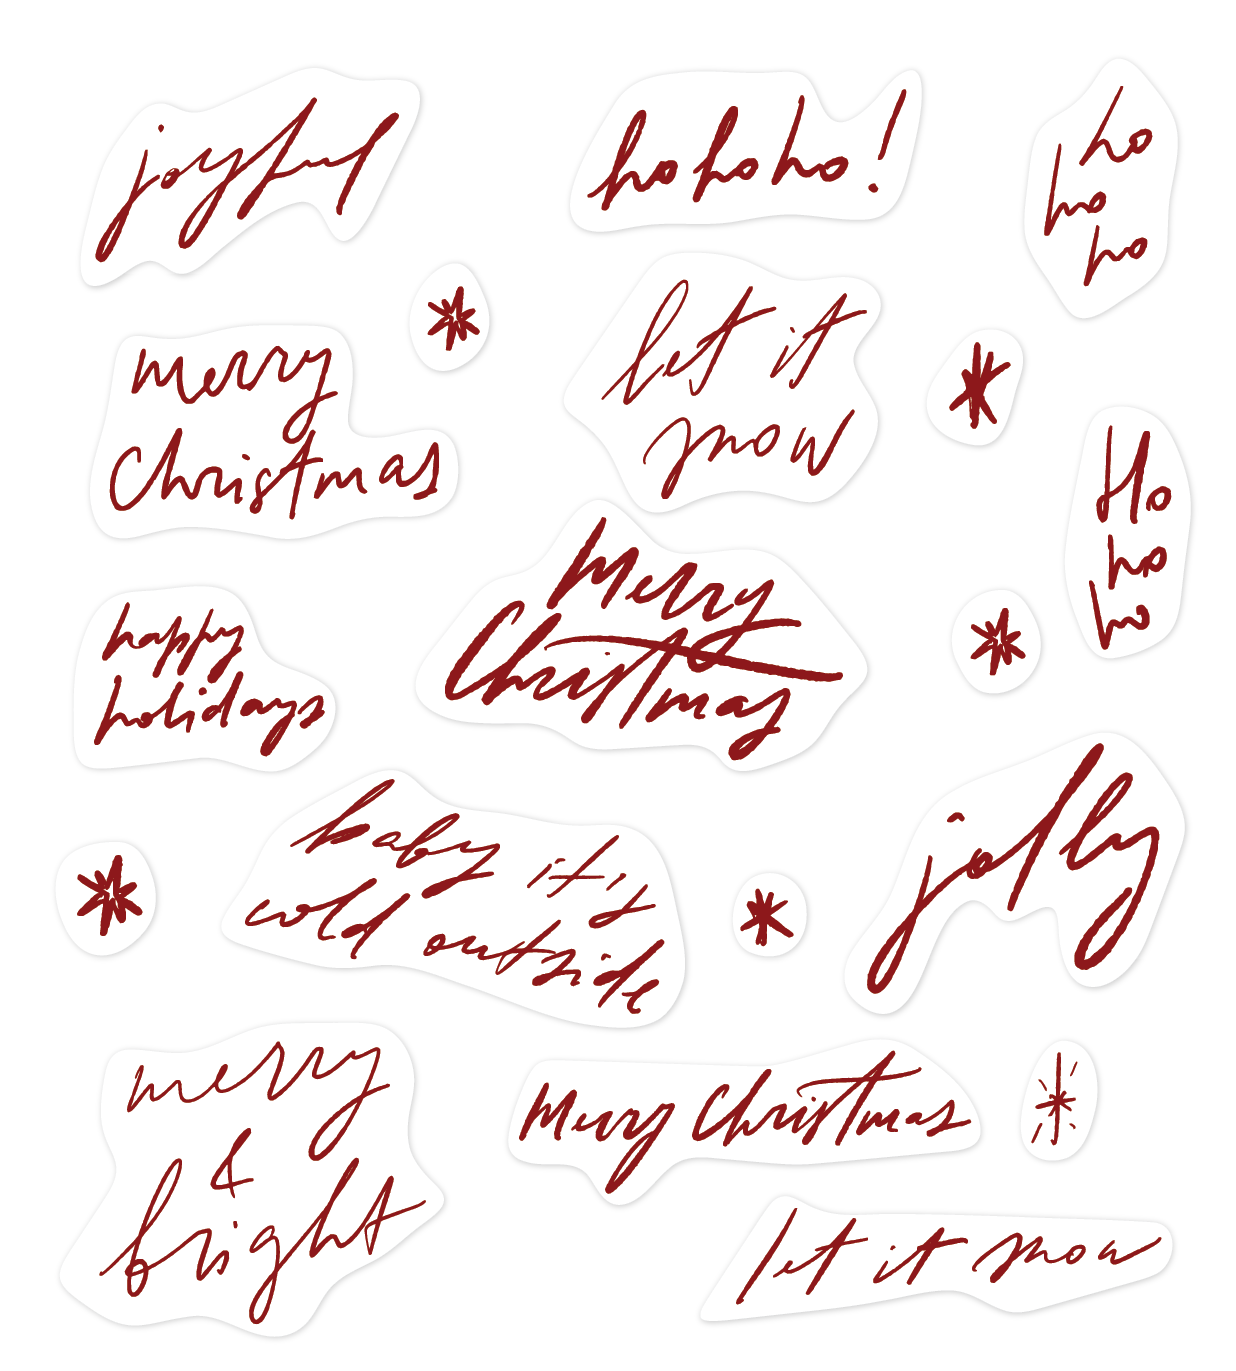 joyful
hohoho!
ho
ho
ho
merry
Christmas
let it
snow
Ho
ho
ho
Merry
Christmas
happy
holidays
baby it's
cold outside
jolly
merry
&
bright
Merry Christmas
let it snow